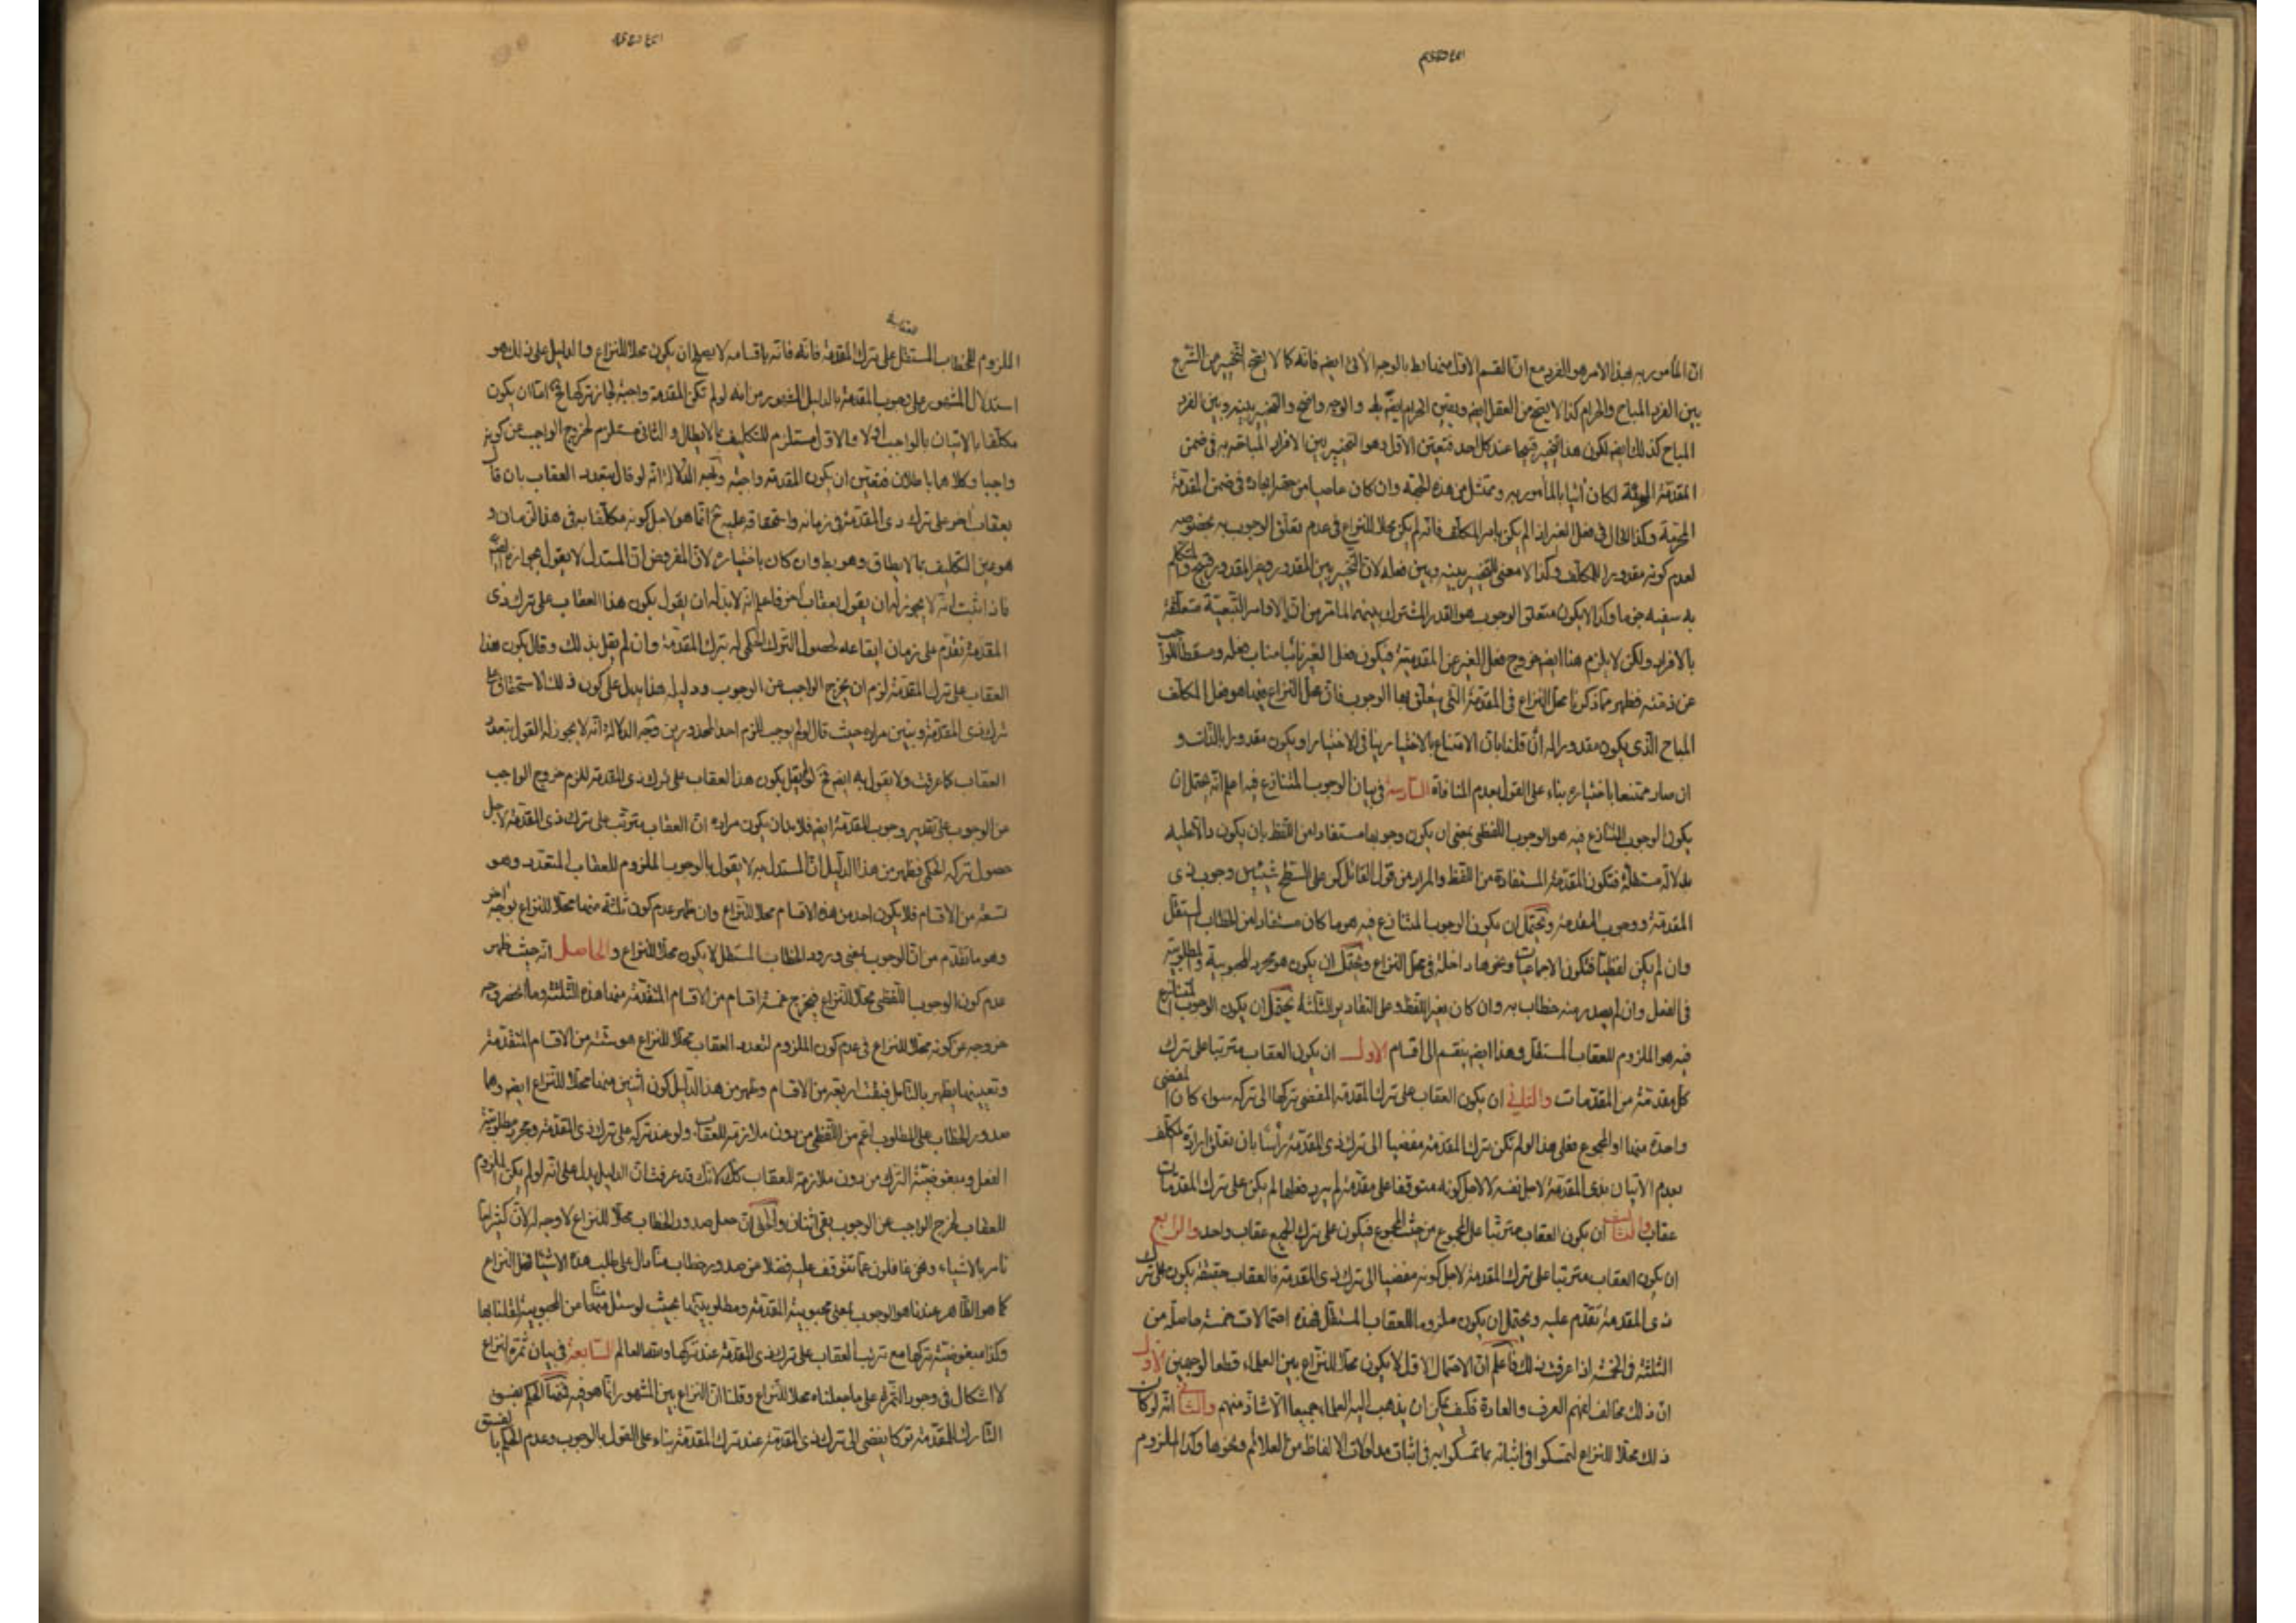 ان المأمور به بهذا الامر هو الفرد مع ان القسم الاول منهما بط بالوجه الآتى ايضا فانه كما لا يصح التخيير من الشرع
بين الفرد المباح والحرام كذا لا يصح من العقل ايضا وتعيين الحرام ايضا بط والوجه واضح والتخيير بينه وبين الفرد
المباح كذلك ايضا لكون هذا التخيير قبيحا عند كل احد فتعين الاول وهو التخيير بين الافراد المباحة في ضمن
المقدمة لكان آتيا بالمأمور به وممتثل من هذه الجهة وان كان عاصيا من جهة ايجاده في ضمن المقدمة
المحرمة وكذا الحال في فعل الغير اذا لم يكن بامر المكلف فانه لم يكن محلا للنزاع في عدم تعلق الوجوب به بخصوصه
لعدم كونه مقدورا للمكلف وكذا لا معنى للتخيير بينه وبين فعله لان التخيير بين المقدور وغير المقدور قبيح والمتكلم
به سفيه جزما وكذا لا يكون متعلق الوجوب هو القدر المشترك بينهما لما مر من ان الاوامر التبعية متعلقة
بالافراد ولكن لا يلزم هنا ايضا خروج فعل الغير عن المقدمية فيكون فعل الغير نائبا مناب فعله ومسقطا للواجب
عن ذمته فظهر مما ذكرنا محل النزاع في المقدمة التي يتعلق بها الوجوب فان محل النزاع فيها هو فعل المكلف
المباح الذى يكون مقدورا له ان قلنا بان الامتناع بالاختيار ينافى الاختيار او يكون مقدورا بالذات و
ان صار ممتنعا باختياره بناء على القول بعدم المنافاة السادسة في بيان الوجوب المتنازع فيه اعلم انه يحتمل ان
يكون الوجوب المتنازع فيه هو الوجوب اللفظى بمعنى ان يكون وجوبها مستفادا من اللفظ بان يكون دالا عليه
بدلالة مستقلة فتكون المقدمة المستفادة من اللفظ والمراد من قول القائل كن على السطح شيئين وجوب ذى
المقدمة ووجوب المقدمة ويحتمل ان يكون الوجوب المتنازع فيه هو ما كان مستفادا من الخطاب المستقل
وان لم يكن لفظيا فتكون الاجماعيات ونحوها داخلة في محل النزاع ويحتمل ان يكون هو مجرد المحبوبية والمطلوبية
في الفعل وان لم يصدر منه خطاب به وان كان بغير اللفظ وعلى التقادير الثلثة يحتمل ان يكون الوجوب المتنازع
فيه هو الملزوم للعقاب المستقل وهذا ايضا ينقسم الى اقسام الاول ان يكون العقاب مترتبا على ترك
كل مقدمة من المقدمات والثانى ان يكون العقاب على ترك المقدمة المفضى تركها الى تركه سواء كان المفضى
واحدة منها او المجموع فعلى هذا لو لم تكن ترك المقدمة مفضيا الى ترك ذى المقدمة رأسا بان تعلق ارادة المكلف
بعدم الاتيان بذى المقدمة لاجل نفسه لا لاجل كونه متوقفا على مقدمة لم يرد فعلها لم يكن على ترك المقدمات
عقاب والثالث ان يكون العقاب مترتبا على المجموع من حيث المجموع فيكون على ترك الجميع عقاب واحد والرابع
ان يكون العقاب مترتبا على ترك المقدمة لاجل كونه مفضيا الى ترك ذى المقدمة فالعقاب حقيقة يكون على ترك
ذى المقدمة تقدم عليه ويحتمل ان يكون ملزوما للعقاب المستقل فهذه احتمالات خمسة حاصلة من
الثلثة في الخمسة اذا عرفت ذلك فاعلم ان الاحتمال الاول لا يكون محلا للنزاع بين العلماء قطعا لوجهين الاول
ان ذلك مخالف لفهم العرف والعادة فكيف يمكن ان يذهب اليه العلماء جميعا الا شاذ منهم والثانى انه لو كان
ذلك محلا للنزاع لتمسكوا في اثباته بما تمسكوا به في اثبات مدلولات الالفاظ من العلائم ونحوها وكذا الملزوم
الملزوم للخطاب المستقل على ترك المقدمة فانه فانه باقسامه لا يصح ان يكون محلا للنزاع والدليل على ذلك هو
استدلال المشهور على وجوب المقدمة بالدليل المشهور من انه لو لم تكن المقدمة واجبة لجاز تركها فح اما ان يكون
مكلفا بالاتيان بالواجب اولا والاول مستلزم للتكليف بما لا يطاق والثانى مستلزم لخروج الواجب عن كونه
واجبا وكلاهما باطلان فتعين ان يكون المقدمة واجبة وجه الدلالة انه لو قال بتعدد العقاب بان قال
بعقاب آخر على ترك ذى المقدمة في زمانه واستحقاقه عليه ح انما هو لاجل كونه مكلفا به في هذا الزمان و
هو عين التكليف بما لا يطاق وهو بط وان كان باختياره لان المفروض ان المستدل لا يقول بجوازه ايضا
فاذا ثبت انه لا يجوز له ان يقول بعقاب آخر فاعلم انه لا بد له ان يقول يكون هذا العقاب على ترك ذى
المقدمة تقدم على زمان ايقاعه لحصول الترك الحكمى له بترك المقدمة وان لم يقل بذلك وقال يكون هذا
العقاب على ترك المقدمة لزم ان يخرج الواجب عن الوجوب ودليله هذا يدل على كون ذلك الاستحقاق على
ترك ذى المقدمة ويبين مراده حيث قال لو لم يوجب للزم احد المحذورين وجه الدلالة انه لا يجوز له القول بتعدد
العقاب كما عرفت ولا يقول به ايضا فح لو لم يقل يكون هذا العقاب على ترك ذى المقدمة للزم خروج الواجب
عن الوجوب على تقدير وجوب المقدمة ايضا فلا بد ان يكون مراده ان العقاب مترتب على ترك ذى المقدمة لاجل
حصول تركه الحكمى فظهر من هذا الدليل ان المستدل به لا يقول بالوجوب الملزوم للعقاب المتعدد وهو
تسعة من الاقسام فلا يكون احد من هذه الاقسام محلا للنزاع وان ظهر عدم كون ثلثة منها محلا للنزاع بوجه آخر
وهو ما تقدم من ان الوجوب بمعنى ورود الخطاب المستقل لا يكون محلا للنزاع والحاصل انه حيث ظهر
عدم كون الوجوب اللفظى محلا للنزاع فيخرج خمسة اقسام من الاقسام المتقدمة منها هذه الثلثة وما انحصر وجه
خروجه عن كونه محلا للنزاع في عدم كون الملزوم لتعدد العقاب محلا للنزاع هو ستة من الاقسام المتقدمة
وتعيينها يظهر بالتامل فبقيت اربعة من الاقسام وظهر من هذا الدليل كون اثنين منها محلا للنزاع ايضا وهما
صدور الخطاب على المطلوب اعم من اللفظى من بدون ملازمة للعقاب ولو عند تركه على ترك ذى المقدمة ومجرد مطلوبية
الفعل ومبغوضية الترك من بدون ملازمة للعقاب كك لانك قد عرفت ان الدليل يدل على انه لو لم يكن الملزوم
للعقاب لخرج الواجب عن الوجوب بقى اثنان والحق ان جعل صدور الخطاب محلا للنزاع لا وجه له لان كثيرا ما
نامر بالاشياء ونحن غافلون عما تتوقف عليه فضلا عن صدور خطاب منا دال على طلب هذه الاشياء فمحل النزاع
كما هو الظاهر عندنا هو الوجوب بمعنى محبوبية المقدمة ومطلوبيتها بحيث لو سئل عنها من المحبوبية لقلنا بها
وكذا مبغوضية تركها مع ترتب العقاب على ترك ذى المقدمة عند تركها السابعة في بيان ثمرة النزاع
لا اشكال في وجود الثمرة على ما جعلناه محلا للنزاع وقلنا ان النزاع بين المشهور انما هو فيه الحكم بفسق
التارك للمقدمة تركا يفضى الى ترك ذى المقدمة عند ترك المقدمة بناء على القول بالوجوب وعدم الحكم بالفسق